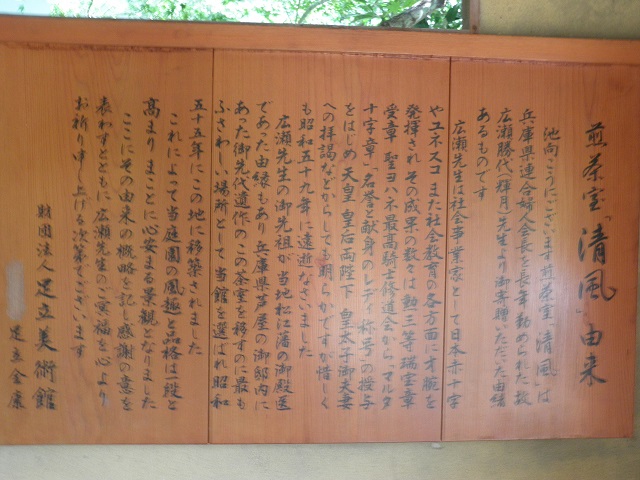 煎茶室「清風」由来
池向こうにございます煎茶室「清風」は
兵庫県連合婦人会長を長年勤められた故
広瀬勝代(輝月)先生より御寄贈いただいた由緒
あるものです
広瀬先生は社会事業家として日本赤十字
やユネスコ また社会教育の各方面に才腕を
発揮され その成果の数々は 勲三等瑞宝章
受章 聖ヨハネ最高騎士修道会から マルタ
十字章 名誉と献身のレディ称号の授与
をはじめ 天皇 皇后両陛下 皇太子御夫妻
への拝謁などからしても明らかですが惜しく
も昭和五十九年に逝去なさいました
広瀬先生の御先祖が当地松江藩の御殿医
であった由縁もあり 兵庫県芦屋の御邸内に
あった御先代遺作のこの茶室を移すのに最も
ふさわしい場所として当館を選ばれ 昭和
五十五年にこの地に移築されました
これによって当庭園の風趣と品格は段と
高まり まことに心安まる景観となりました
ここにその由来の概略を記し感謝の意を
表わすとともに 広瀬先生のご冥福を心より
お祈り申し上げる次第でございます
財団法人 足立美術館
足立全康